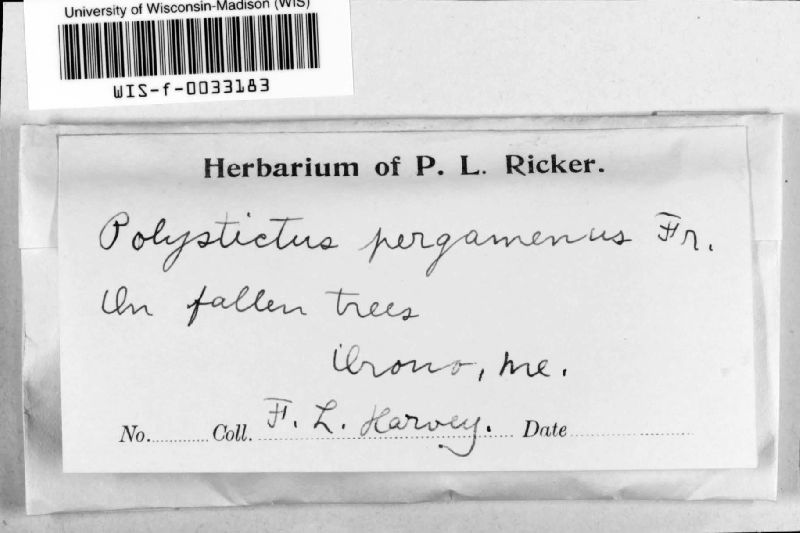 University of Wisconsin-Madison (WIS)
WIS-f-0033183
Herbarium of P. L. Ricker.
Polystictus pergamenus Fr.
On fallen trees
Orono, Me.
No. Coll. F. L. Harvey. Date